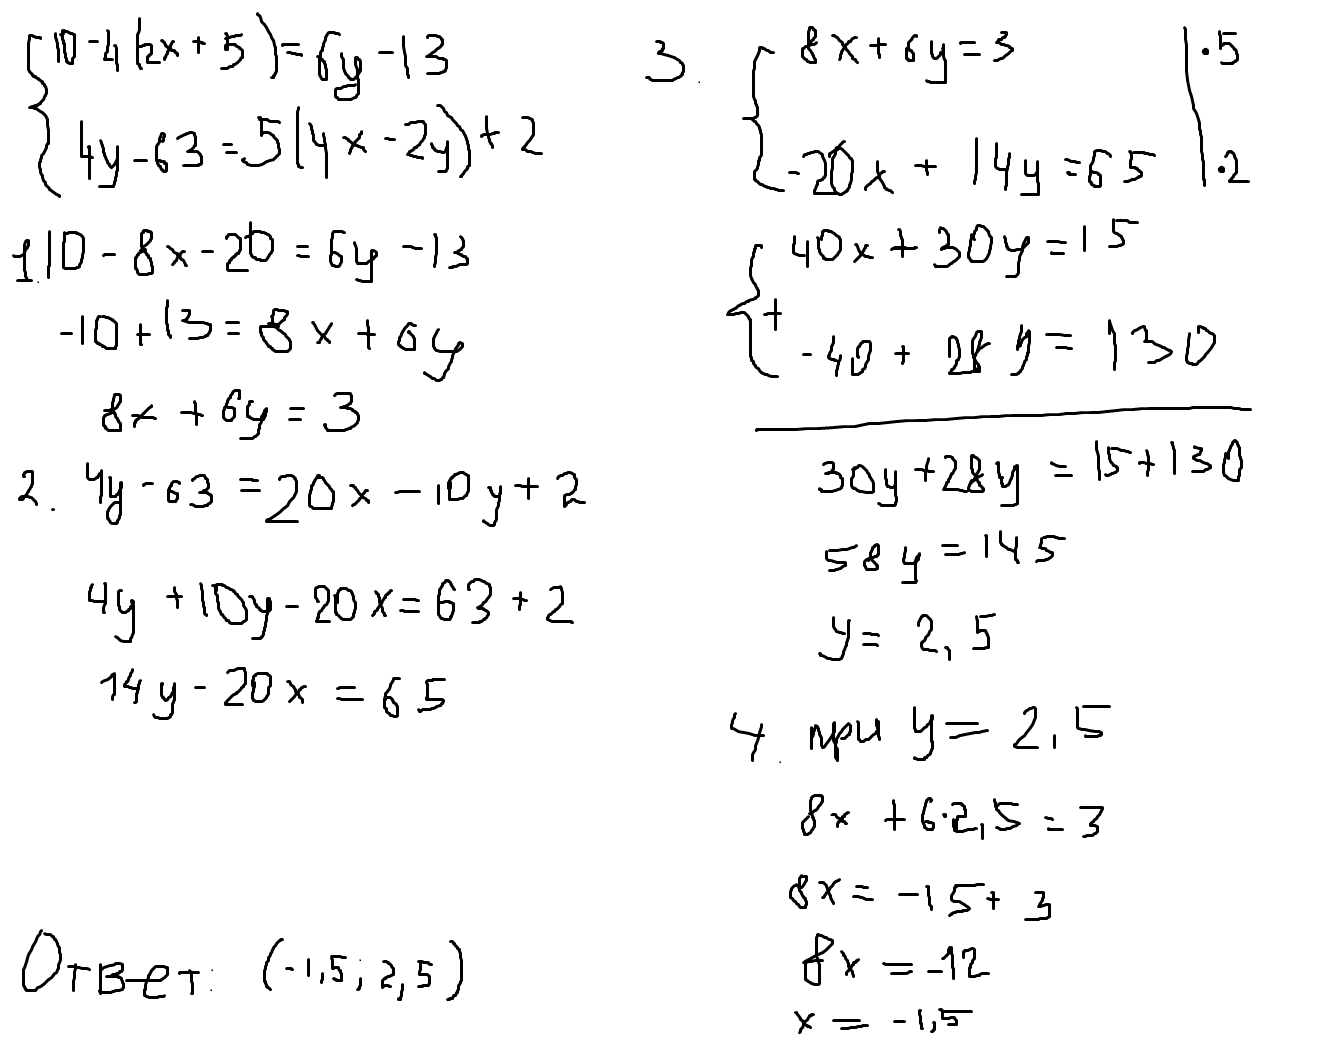 10-4(2x+5)=6y-13
4y-63=5(4x-2y)+2
1.10-8x-20=6y-13
-10+13=8x+6y
8x+6y=3
2. 4y-63=20x-10y+2
4y+10y-20x=63+2
14y-20x=65
Ответ: (-1,5; 2,5)
3. 8x+6y=3 |·5
-20x+14y=65 |·2
40x+30y=15
+
-40+28y=130
30y+28y=15+130
58y=145
y=2,5
4. при y=2,5
8x+6·2,5=3
8x=-15+3
8x=-12
x=-1,5